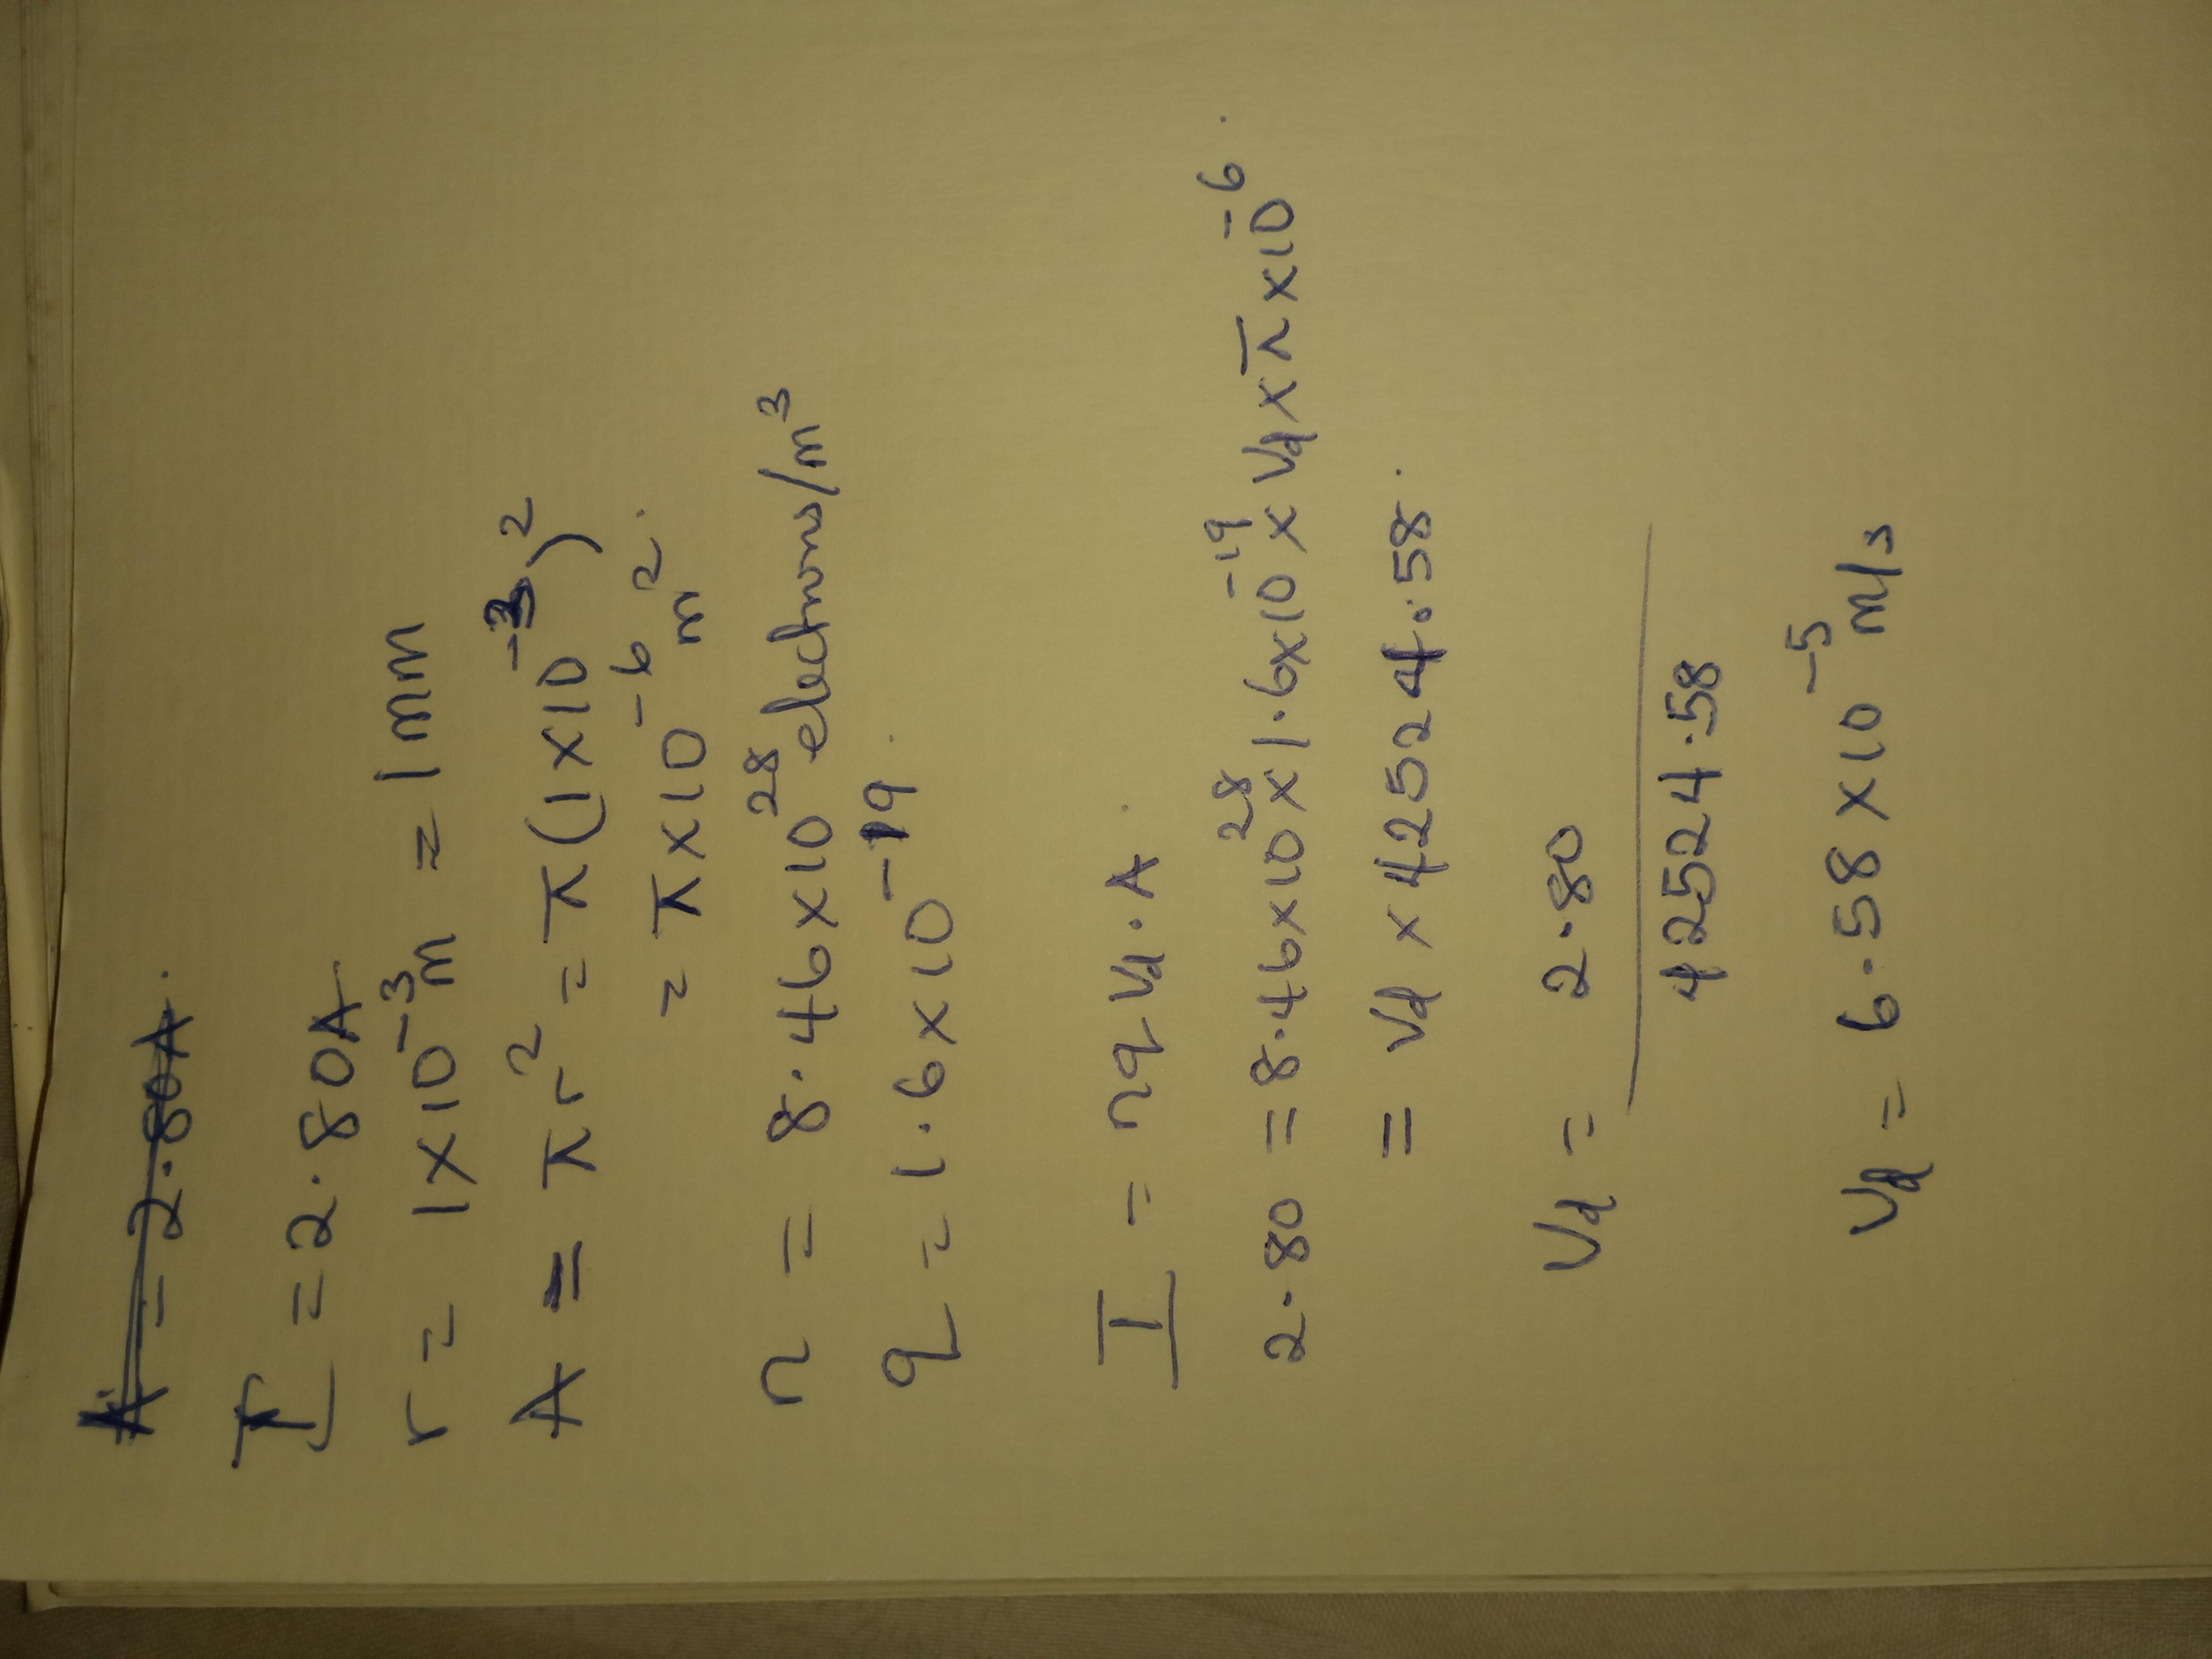 A = 2.80A.
I = 2.80A
r = 1×10⁻³m = 1mm
A = πr² = π(1×10⁻³)²
= π×10⁻⁶ m².
n = 8.46×10²⁸ electrons/m³
q = 1.6×10⁻¹⁹.
I = nqVd.A.
2.80 = 8.46×10²⁸×1.6×10⁻¹⁹×Vd×π×10⁻⁶.
= Vd × 42524.58.
Vd = 2.80
42524.58
Vd = 6.58×10⁻⁵ m/s